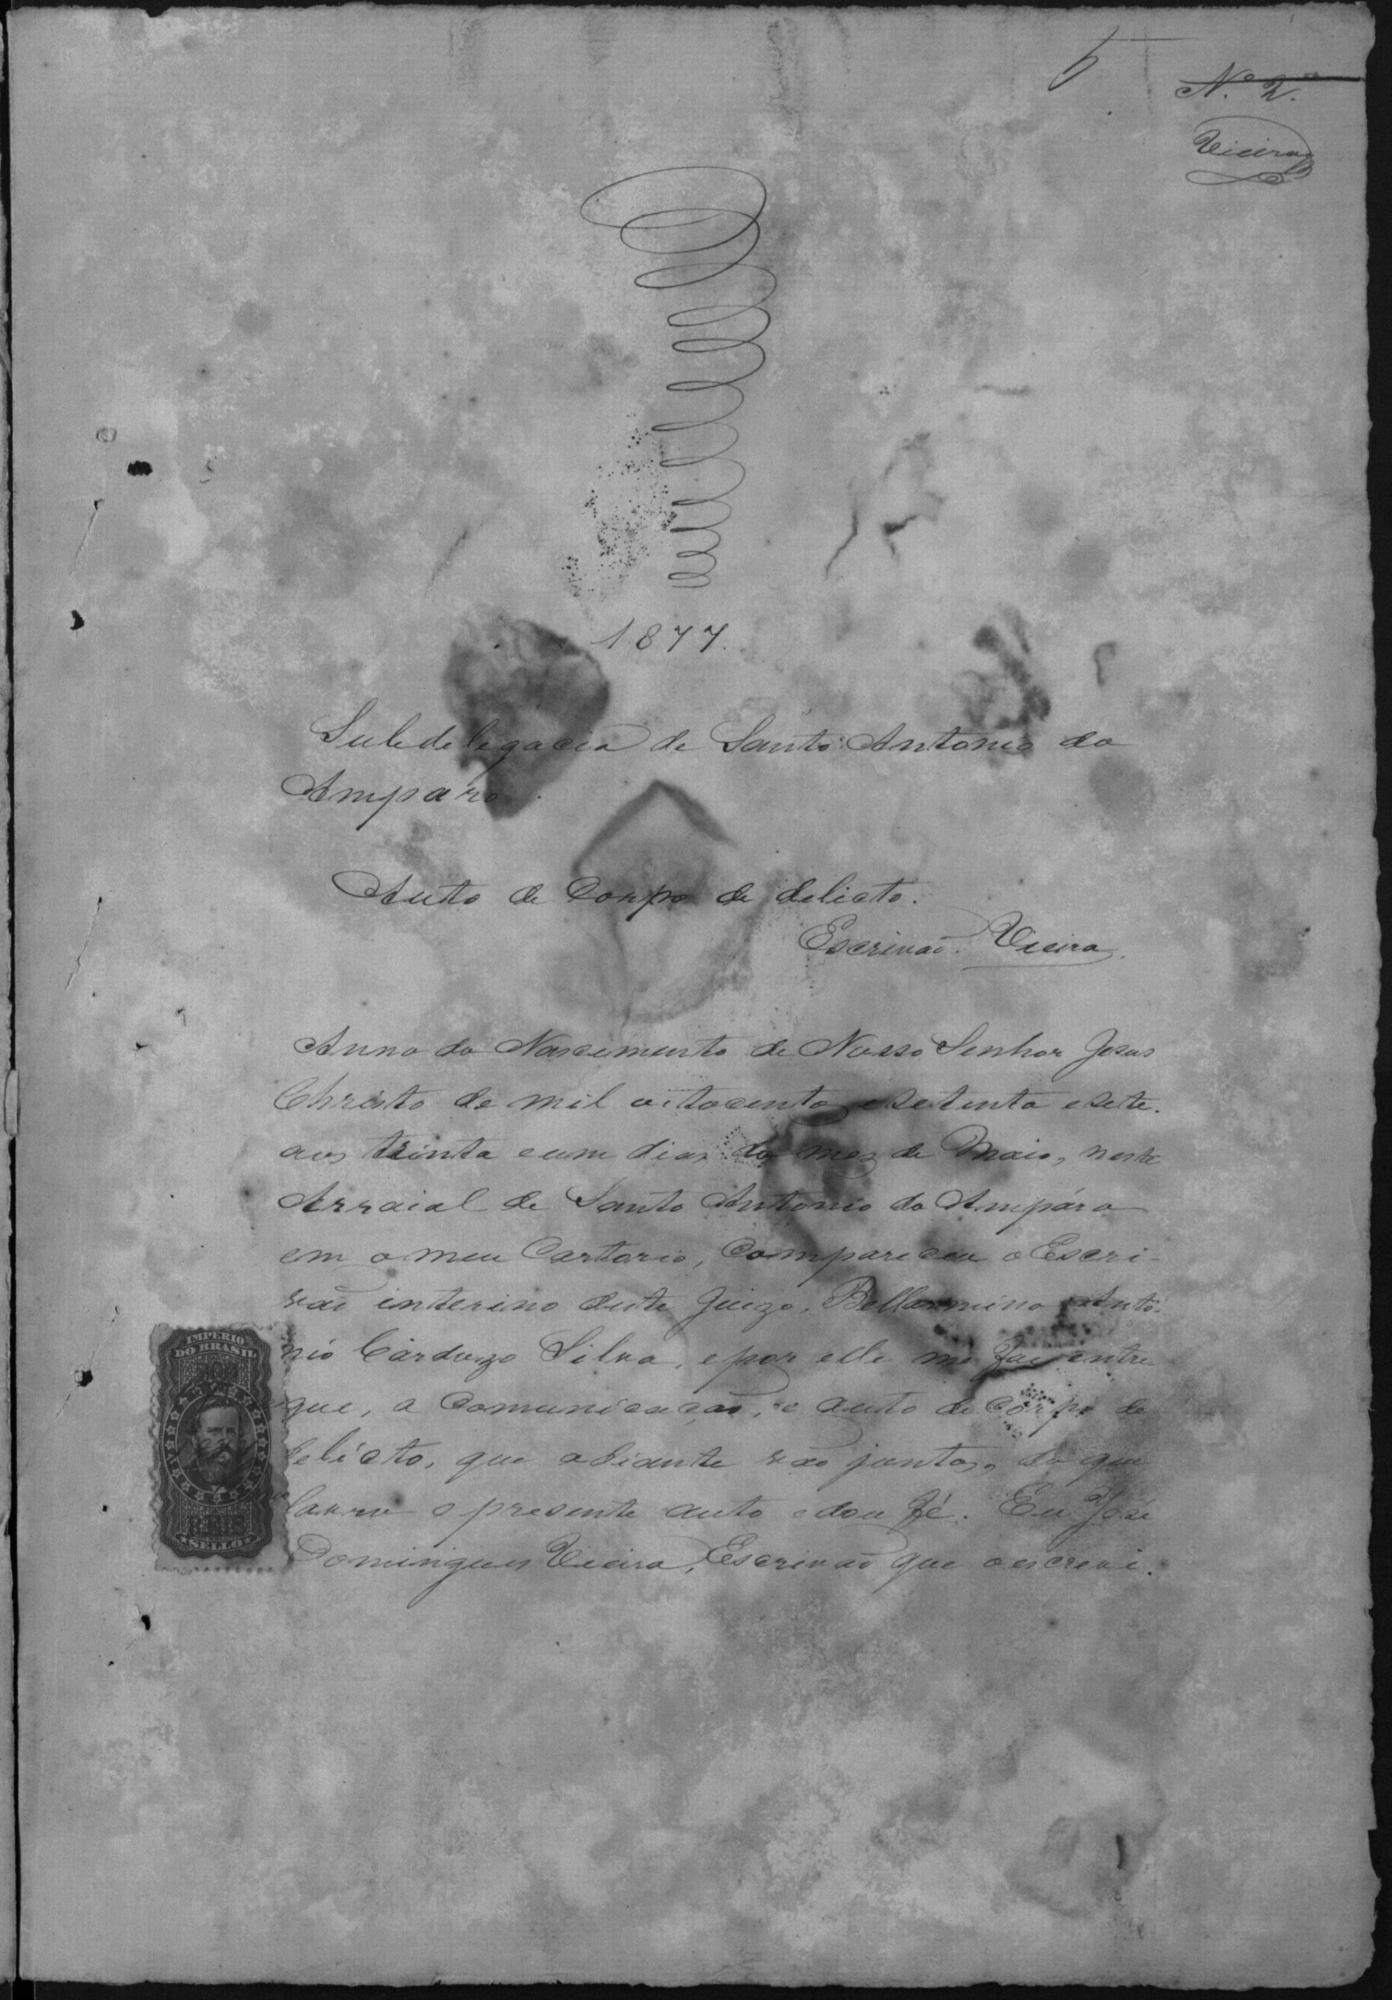 5
N.º 2.
Vieira
1877.
Subdelegacia de Santo Antonio do
Ampáro.
Auto de Corpo de delicto.
Escrivaõ. Vieira.
Anno do Nascimento de Nosso Senhor Jesus
Christo de mil oitocento e setenta e sete.
aos trinta e um dias do mez de Maio, neste
Arraial de Santo Antonio do Ampáro
em o meu Cartorio, Compareceu o Escri-
vaõ interino deste Juizo, Bellarmino Anto-
nio Cardozo Silva, e por elle me foi entre
gue, a Comunicacaõ, e auto de Corpo de
delicto, que adiante vaõ juntos, do que
lavro o presente auto e dou fé. Eu José
Domingues Vieira, Escrivaõ que o escrevi.
IMPERIO
DO BRASIL
SELLO